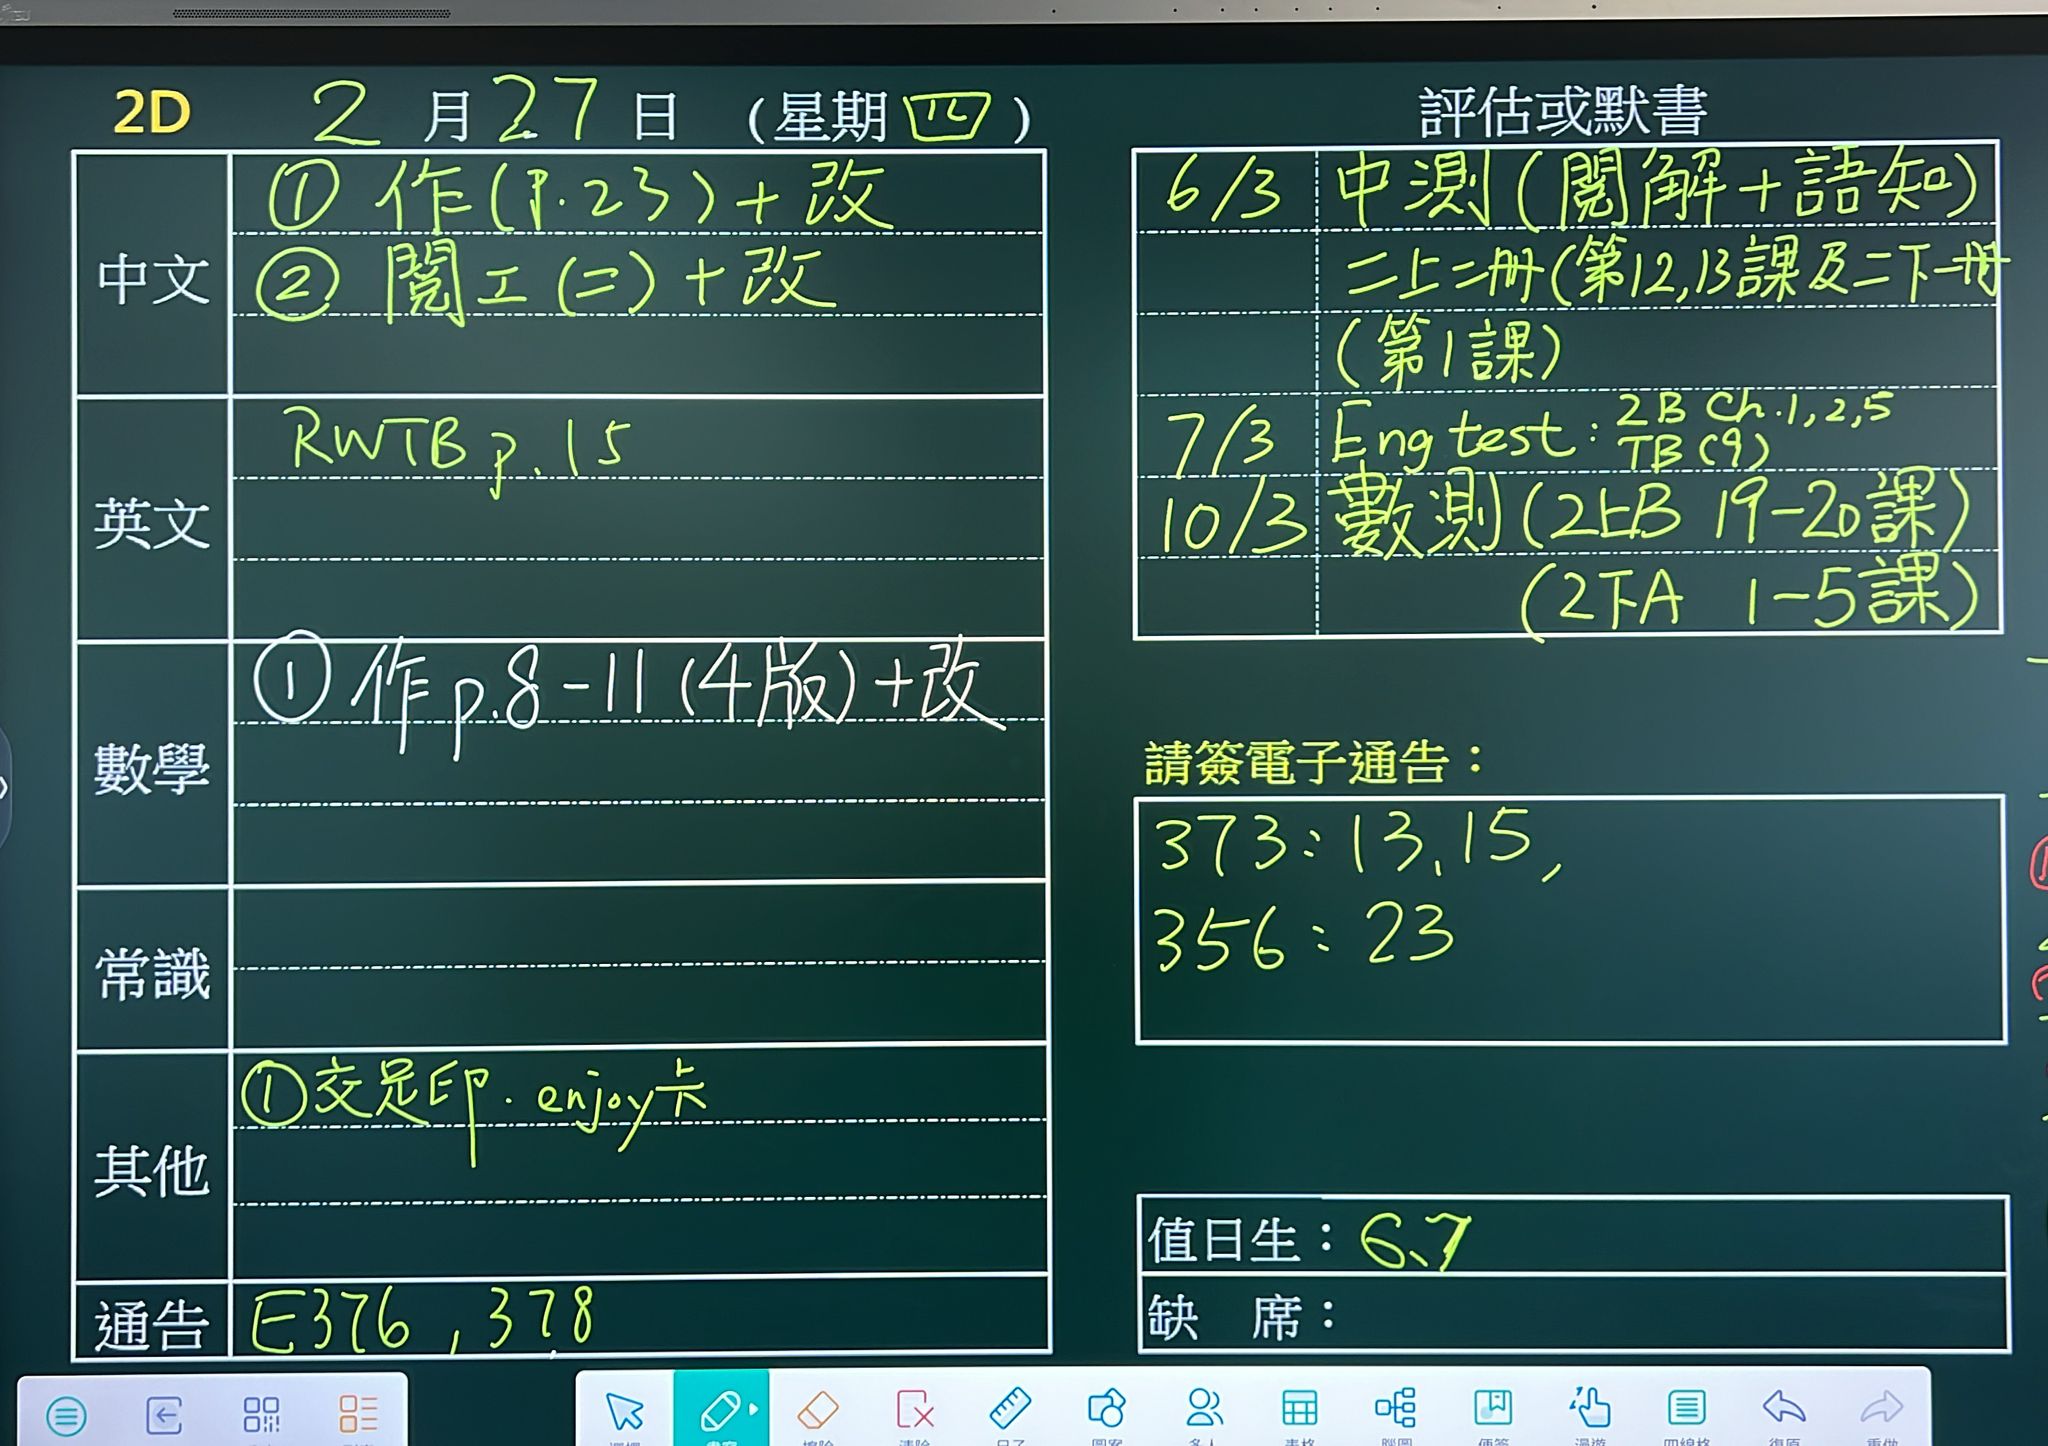 2D 2月27日 (星期四)
中文
① 作(P.23)+改
② 閱工(二)+改
英文
RWTB p.15
數學
① 作p.8-11(4版)+改
常識
其他
①交足印.enjoy卡
通告
E376, 378
評估或默書
6/3 中測(閱解+語知)
二上二冊(第12,13課及二下一冊
(第1課)
7/3 Eng test: 2B Ch.1,2,5
TB(9)
10/3 數測(2上B 19-20課)
(2下A 1-5課)
請簽電子通告：
373:13、15,
356:23
值日生：6、7
缺 席：